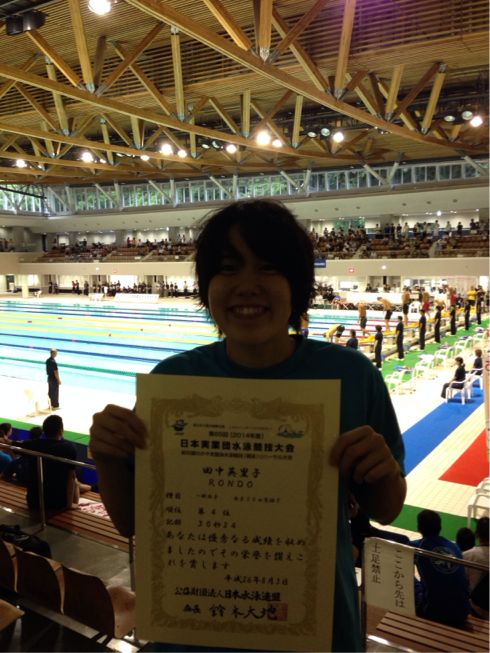 第65回(2014年度)
日本実業団水泳競技大会
田中英里子
RONDO
種目
順位 第4位
記録 30秒24
あなたは優秀なる成績を収め
ましたのでその栄誉を讃えこ
れを賞します
平成26年8月3日
公益財団法人日本水泳連盟
会長 鈴木大地
ここから先は
土足禁止